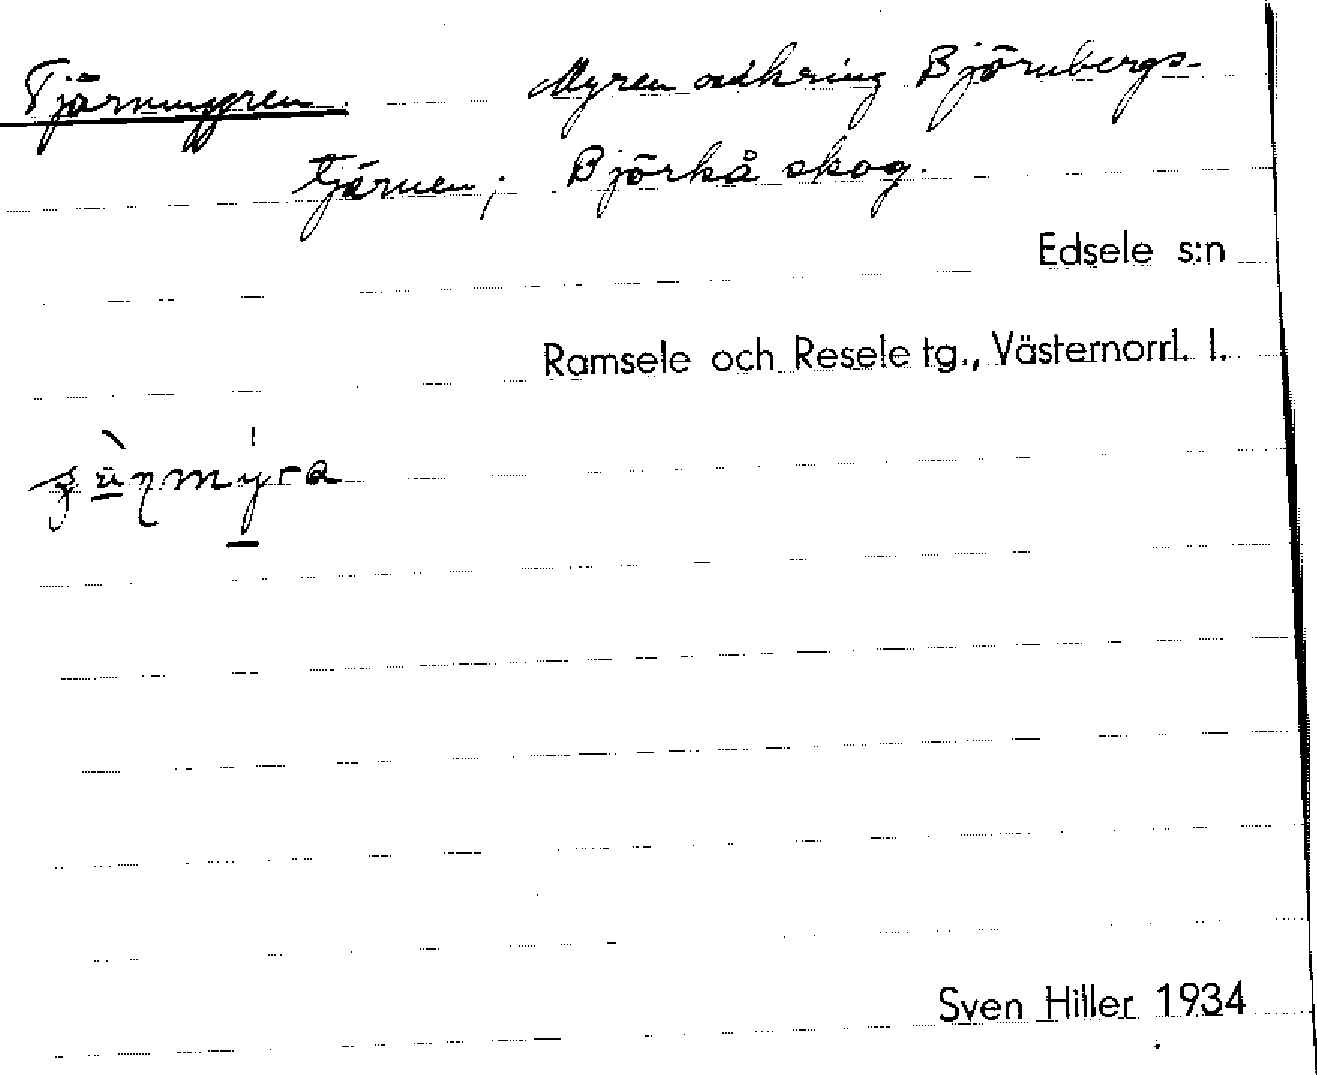 Tjärnmyren. Myren omkring Björnbergs-
tjärnen; Björkå skog.
Edsele s:n
Ramsele och Resele tg., Västernorrl. l.
Sven Hiller 1934